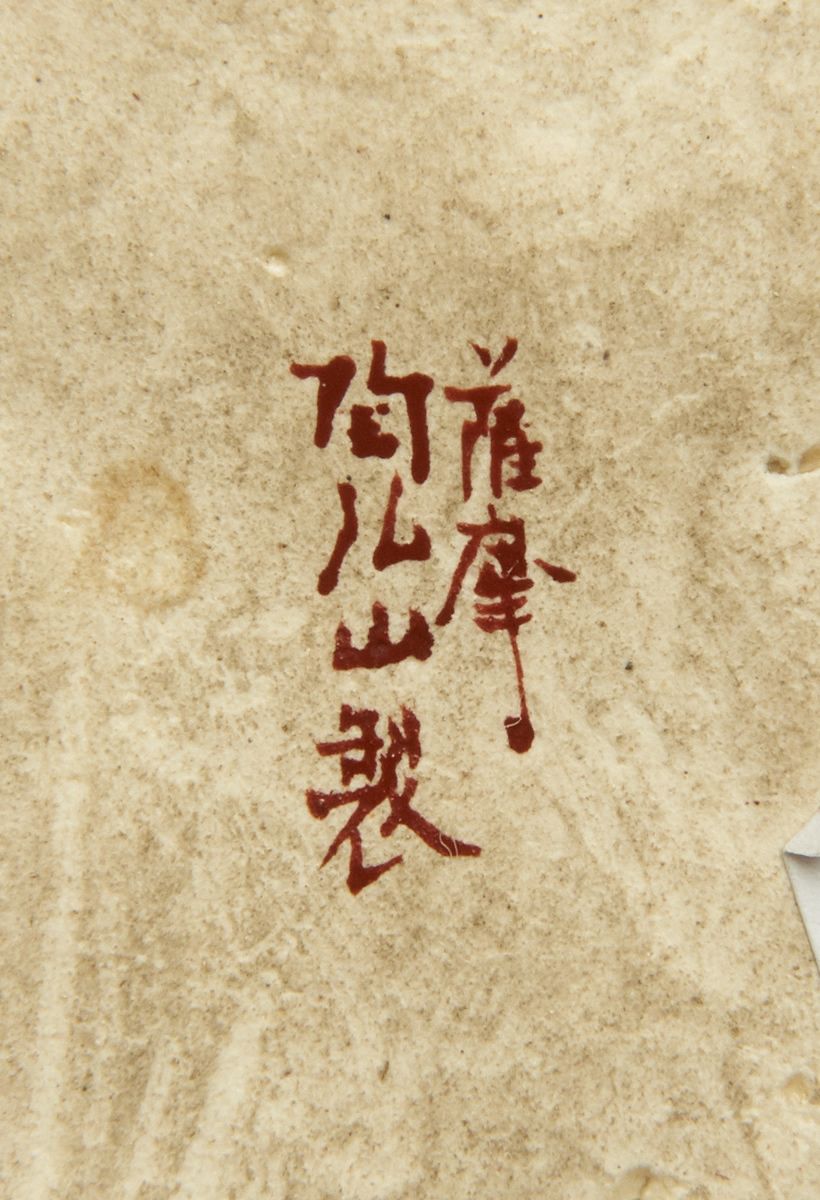 薩摩
陶山製